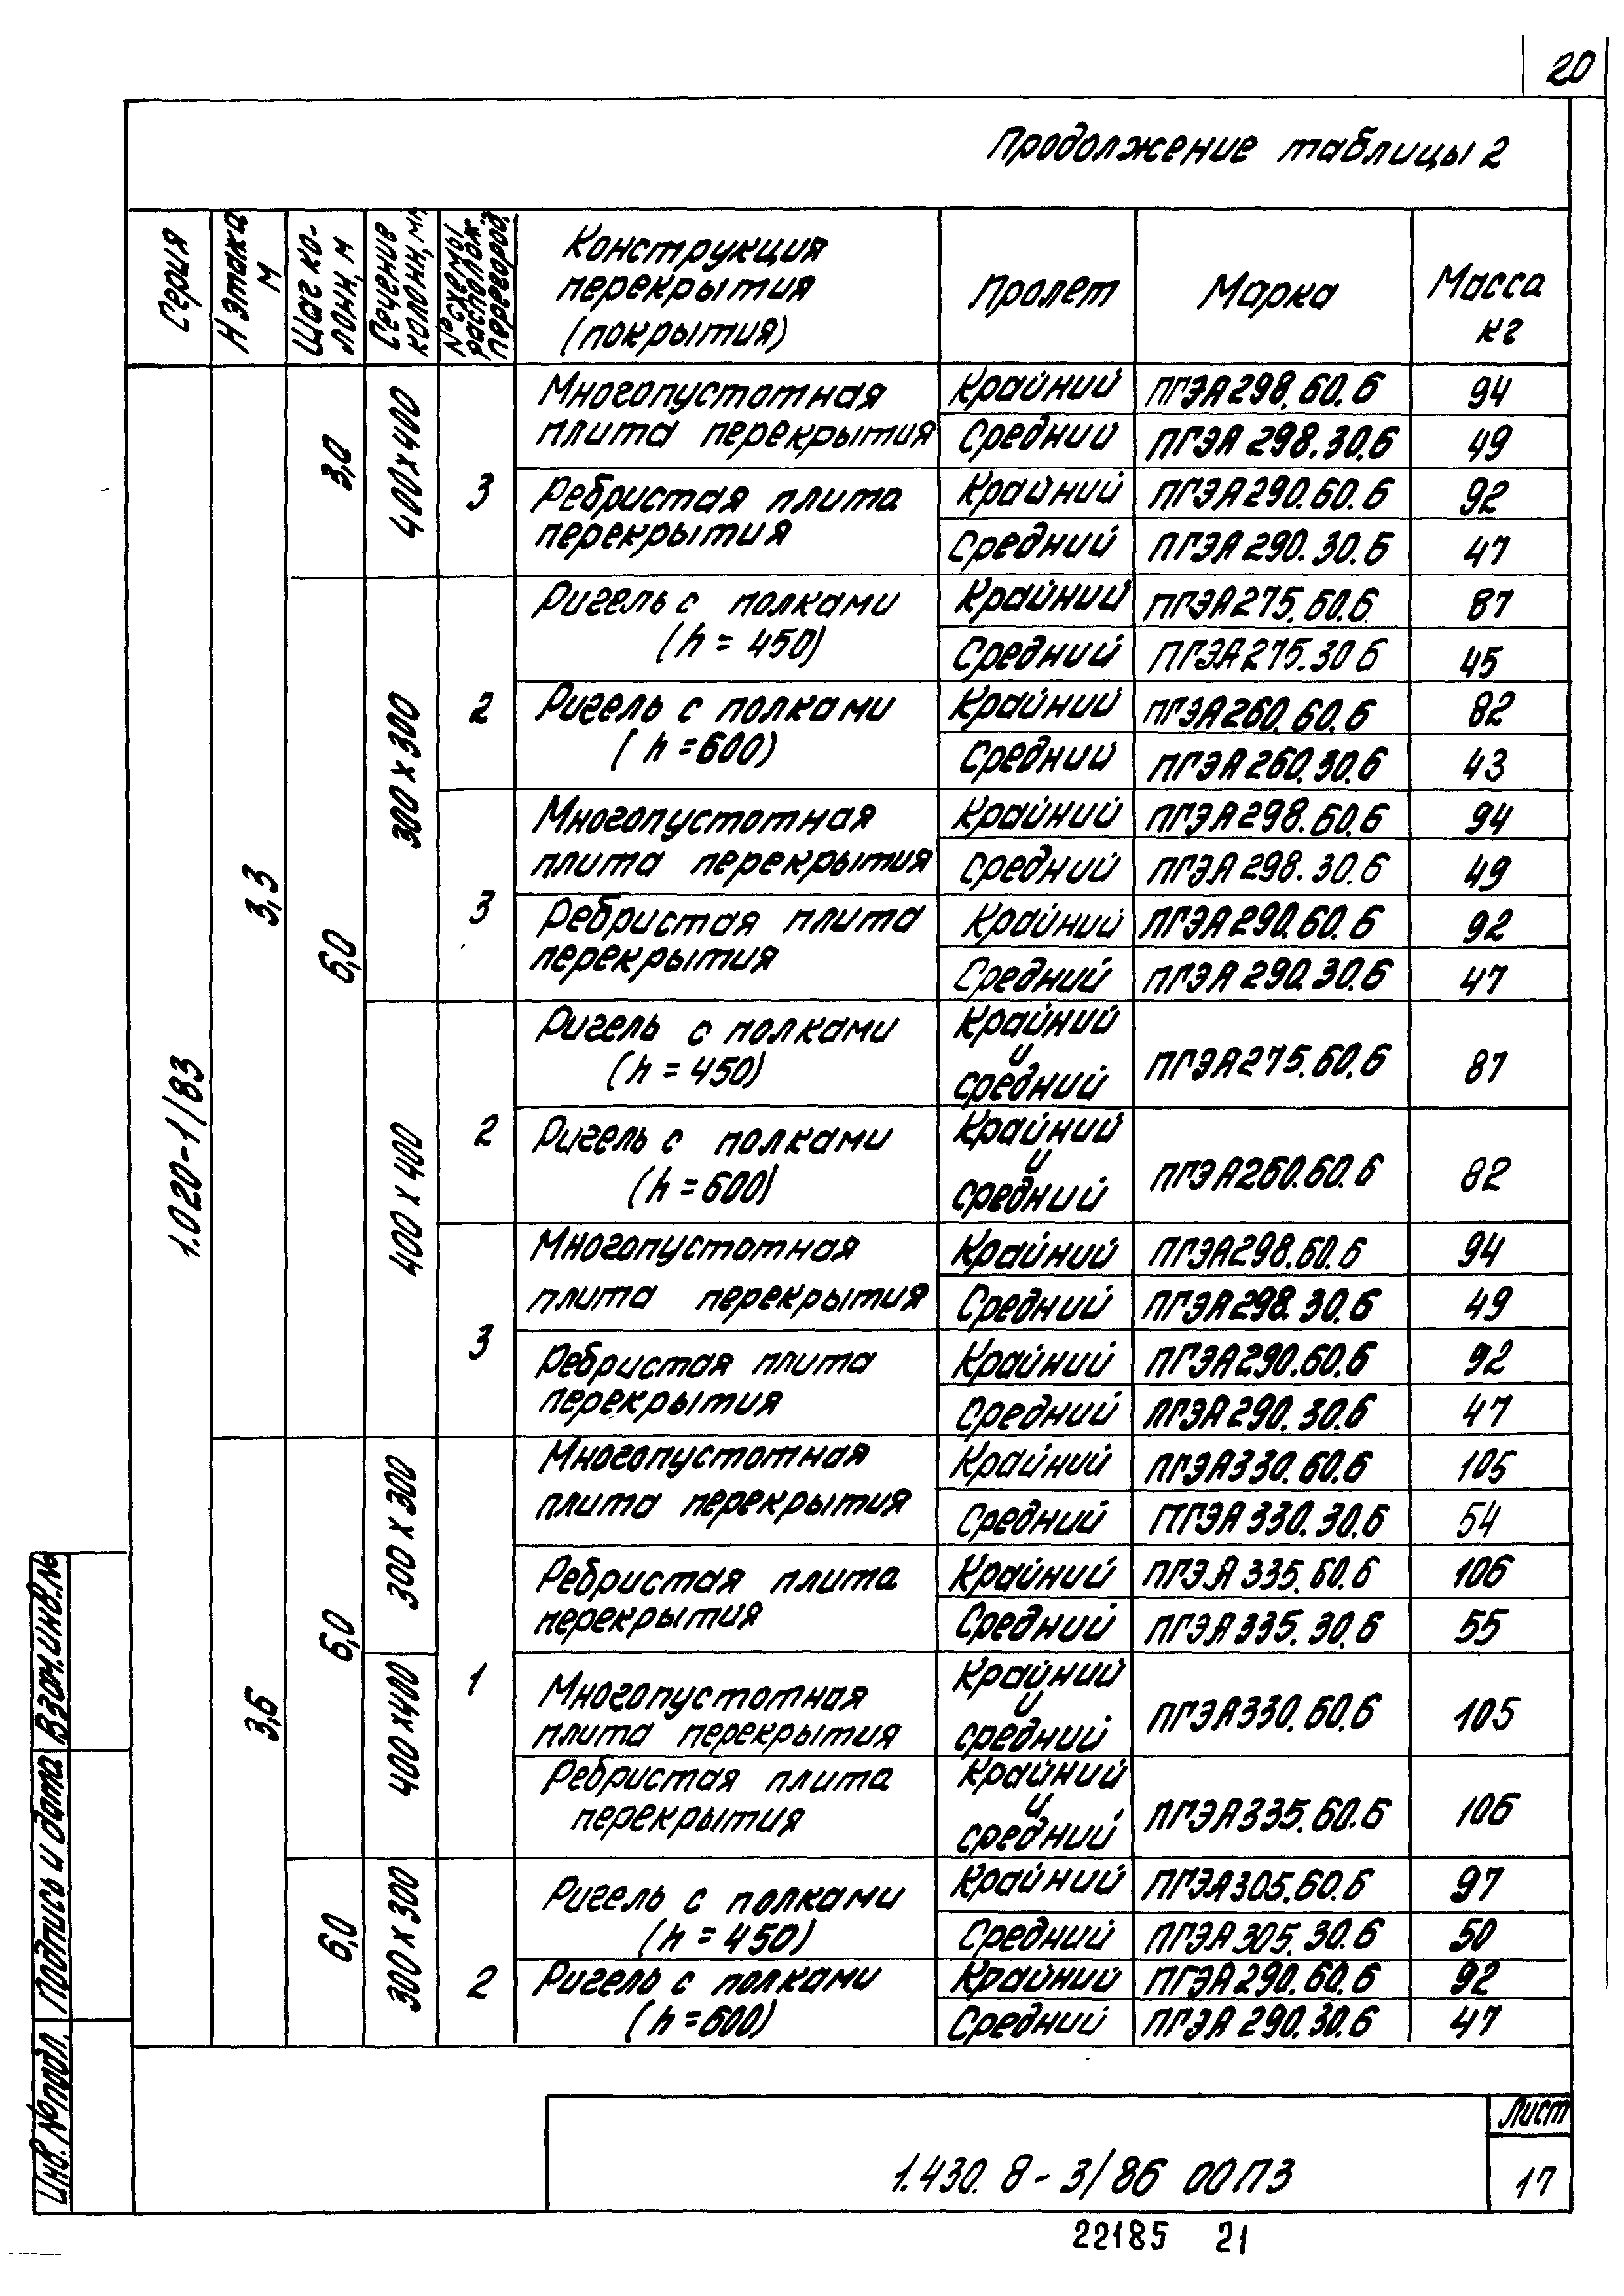 20
Продолжение таблицы 2
Серия
Н этажа
м
Шаг ко-
лонн, м
Сечение
колонн, мм
№ схемы
располож.
перегород.
Конструкция
перекрытия
(покрытия)
Пролет
Марка
Масса
кг
1.020-1/83
3,3
3,0
400х400
3
Многопустотная
плита перекрытия
Крайний ПГЭА298.60.6 94
Средний ПГЭА 298.30.6 49
Ребристая плита
перекрытия
Крайний ПГЭА290.60.6 92
Средний ПГЭА 290.30.6 47
6,0
300 х 300
2
Ригель с полками
(h = 450)
Крайний ПГЭА275.60.6 87
Средний ПГЭА275.30 6 45
Ригель с полками
(h =600)
Крайний ПГЭА260.60.6 82
Средний ПГЭА 260.30.6 43
3
Многопустотная
плита перекрытия
Крайний ПГЭА298.60.6 94
Средний ПГЭА 298.30.6 49
Ребристая плита
перекрытия
Крайний ПГЭА290.60.6 92
Средний ПГЭА 290.30.6 47
400 х 400
2
Ригель с полками
(h = 450)
Крайний
и
средний
ПГЭА275.60.6 87
Ригель с полками
(h =600)
Крайний
и
средний
ПГЭА260.60.6 82
3
Многопустотная
плита перекрытия
Крайний ПГЭА298.60.6 94
Средний ПГЭА298.30.6 49
Ребристая плита
перекрытия
Крайний ПГЭА290.60.6 92
Средний ПГЭА290.30.6 47
3,6
6,0
300 х 300
1
Многопустотная
плита перекрытия
Крайний ПГЭА330.60.6 105
Средний ПГЭА 330.30.6 54
Ребристая плита
перекрытия
Крайний ПГЭА 335.60.6 106
Средний ПГЭА 335.30.6 55
400 х400
Многопустотная
плита перекрытия
Крайний
и
средний
ПГЭА330.60.6 105
Ребристая плита
перекрытия
Крайний
и
средний
ПГЭА335.60.6 106
6,0
300 х 300
2
Ригель с полками
(h = 450)
Крайний ПГЭА305.60.6 97
Средний ПГЭА 305.30.6 50
Ригель с полками
(h =600)
Крайний ПГЭА 290.60.6 92
Средний ПГЭА 290.30.6 47
Взам.инв.№
Подпись и дата
Инв. № подл.
1.430. 8 - 3/86 00ПЗ
Лист
17
22185 21